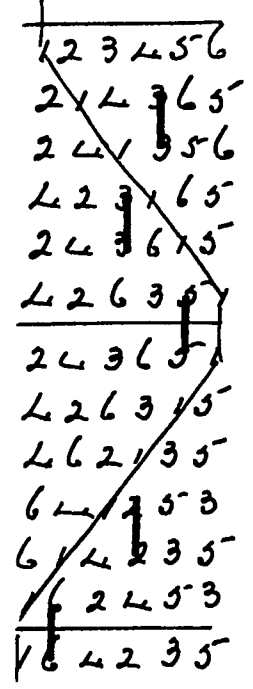 1 2 3 4 5 6
2 1 4 3 6 5
2 4 1 3 5 6
4 2 3 1 6 5
2 4 3 6 1 5
4 2 6 3 5 1
2 4 3 6 5 1
4 2 6 3 1 5
4 6 2 1 3 5
6 4 1 2 5 3
6 1 4 2 3 5
1 6 2 4 5 3
1 6 4 2 3 5